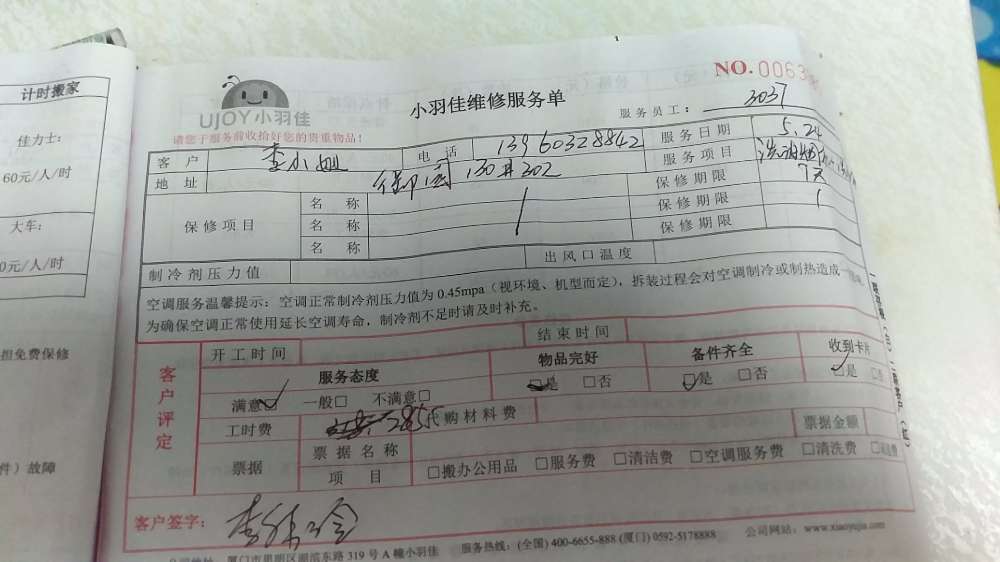 计时搬家
佳力士:
60元/人/时
大车:
0元/人/时
担免费保修
件）故障
UJOY小羽佳
小羽佳维修服务单
NO.0063
请您于服务前收拾好您的贵重物品!
服务员工: 3037
客户 李小姐 电话 13960328842 服务日期 5.24
地址 130#302 服务项目 洗油烟机
保修项目 名称 保修期限 7天
名称 保修期限
名称 保修期限
制冷剂压力值 出风口温度
空调服务温馨提示: 空调正常制冷剂压力值为0.45mpa（视环境、机型而定），拆装过程会对空调制冷或制热造成一
为确保空调正常使用延长空调寿命，制冷剂不足时请及时补充。
客户评定
开工时间 结束时间
服务态度 物品完好 备件齐全 收到卡片
满意□ 一般□ 不满意□ □是 □否 □是 □否 □是 □否
工时费 285 代购材料费 票据金额
票据 票据名称
项目 □搬办公用品 □服务费 □清洁费 □空调服务费 □清洗费
客户签字:
厦门市思明区湖滨东路319号A幢小羽佳 服务热线: (全国) 400-6655-888 (厦门) 0592-5178888 公司网站: www.xiaoyujia.com